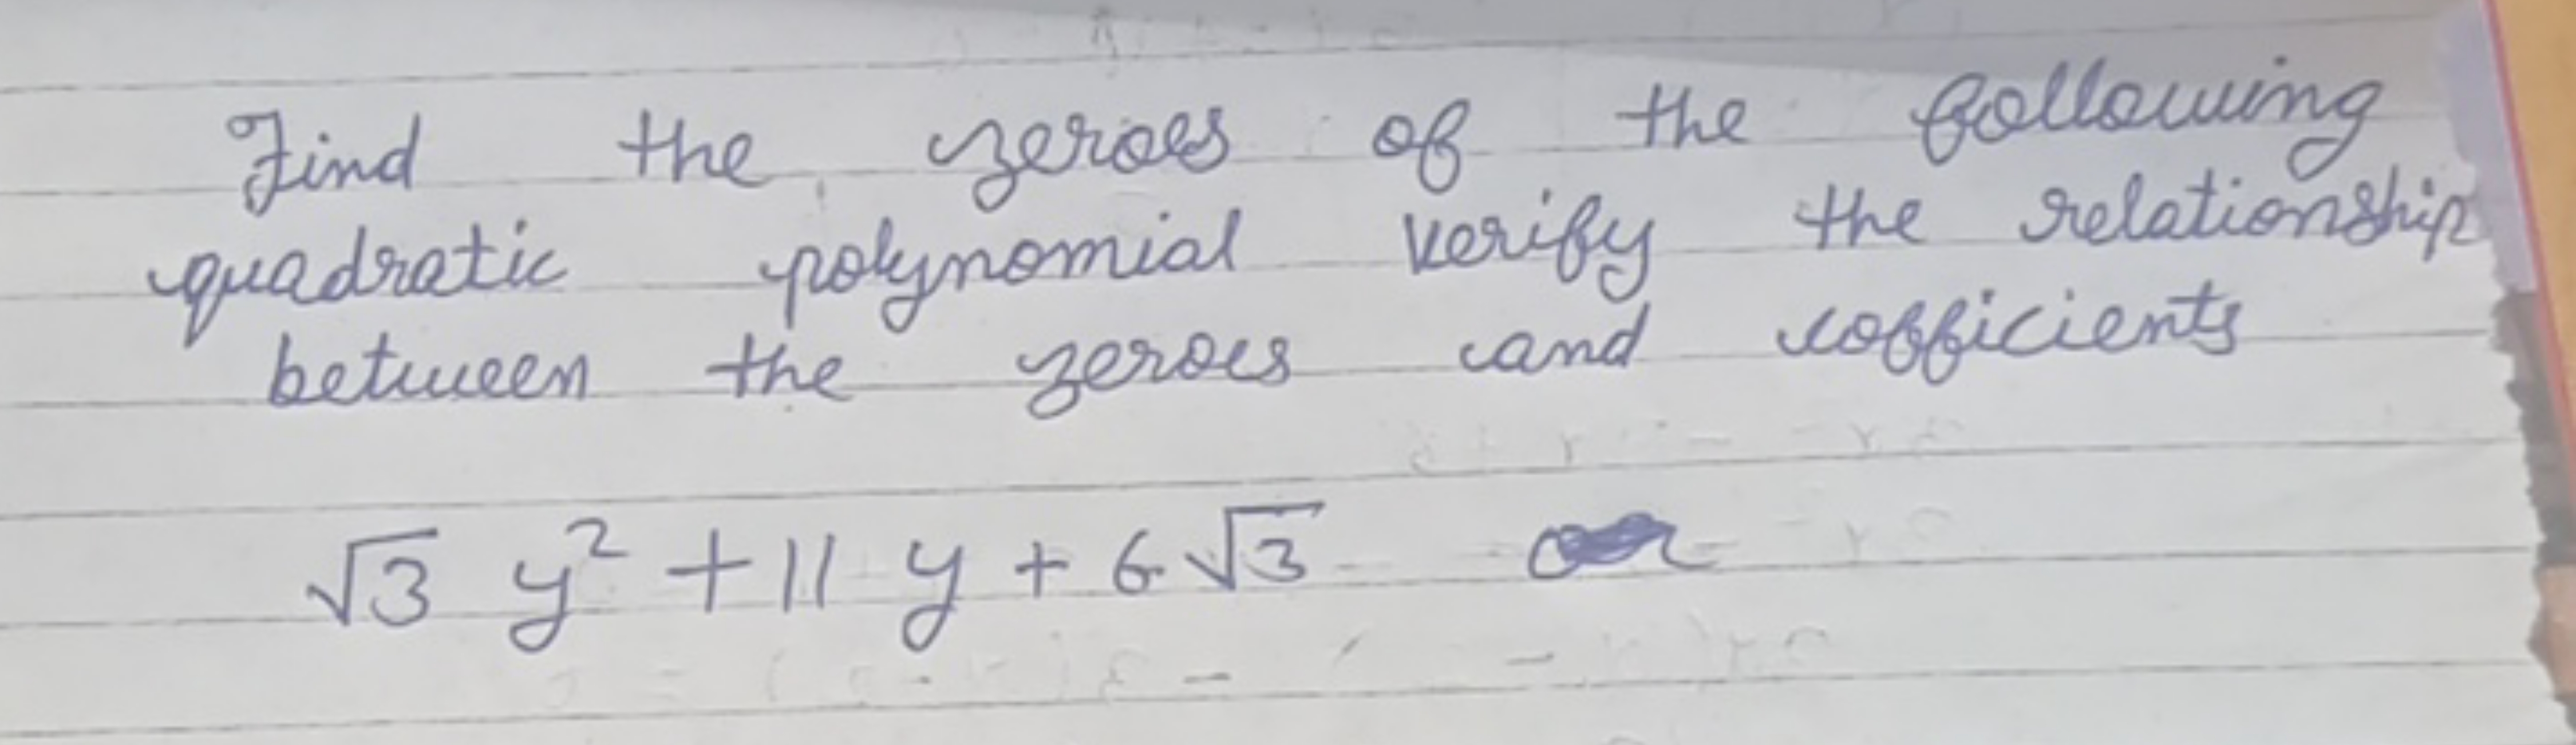 Find the zeroes of the following
quadratic polynomial verify the relationship
between the zeroes and cofficients
√3 y² + 11 y + 6√3